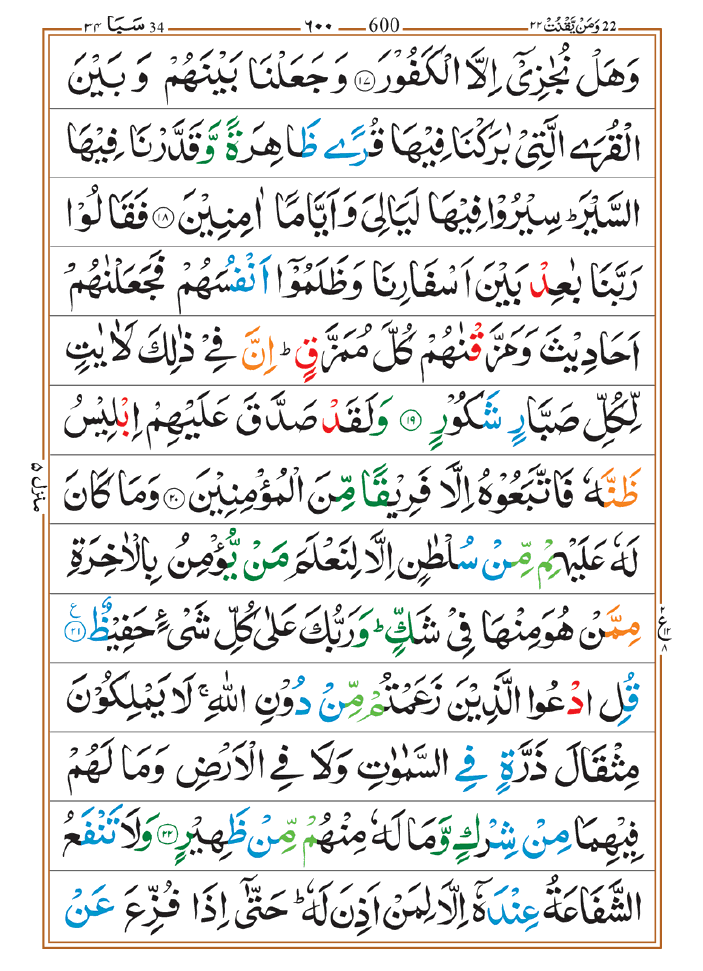 22 وَمَنْ يَّقْنُتْ ٢٢ — 600 — ٦٠٠ — 34 سَبَا ٣٤
وَهَلْ نُجٰزِيْۤ اِلَّا الْكَفُوْرَ ﴿١٧﴾ وَجَعَلْنَا بَيْنَهُمْ وَبَيْنَ
الْقُرَى الَّتِيْ بٰرَكْنَا فِيْهَا قُرًى ظَاهِرَةً وَّقَدَّرْنَا فِيْهَا
السَّيْرَ ؕ سِيْرُوْا فِيْهَا لَيَالِيَ وَاَيَّامًا اٰمِنِيْنَ ﴿١٨﴾ فَقَالُوْا
رَبَّنَا بٰعِدْ بَيْنَ اَسْفَارِنَا وَظَلَمُوْۤا اَنْفُسَهُمْ فَجَعَلْنٰهُمْ
اَحَادِيْثَ وَمَزَّقْنٰهُمْ كُلَّ مُمَزَّقٍ ؕ اِنَّ فِيْ ذٰلِكَ لَاٰيٰتٍ
لِّكُلِّ صَبَّارٍ شَكُوْرٍ ﴿١٩﴾ وَلَقَدْ صَدَّقَ عَلَيْهِمْ اِبْلِيْسُ
ظَنَّهٗ فَاتَّبَعُوْهُ اِلَّا فَرِيْقًا مِّنَ الْمُؤْمِنِيْنَ ﴿٢٠﴾ وَمَا كَانَ
لَهٗ عَلَيْهِمْ مِّنْ سُلْطٰنٍ اِلَّا لِنَعْلَمَ مَنْ يُّؤْمِنُ بِالْاٰخِرَةِ
مِمَّنْ هُوَ مِنْهَا فِيْ شَكٍّ ؕ وَرَبُّكَ عَلٰى كُلِّ شَيْءٍ حَفِيْظٌ ﴿٢١﴾ ع
قُلِ ادْعُوا الَّذِيْنَ زَعَمْتُمْ مِّنْ دُوْنِ اللّٰهِ ۚ لَا يَمْلِكُوْنَ
مِثْقَالَ ذَرَّةٍ فِي السَّمٰوٰتِ وَلَا فِي الْاَرْضِ وَمَا لَهُمْ
فِيْهِمَا مِنْ شِرْكٍ وَّمَا لَهٗ مِنْهُمْ مِّنْ ظَهِيْرٍ ﴿٢٢﴾ وَلَا تَنْفَعُ
الشَّفَاعَةُ عِنْدَهٗۤ اِلَّا لِمَنْ اَذِنَ لَهٗ ؕ حَتّٰۤى اِذَا فُزِّعَ عَنْ
منزل ٥
٢ ع ١٢ ٨